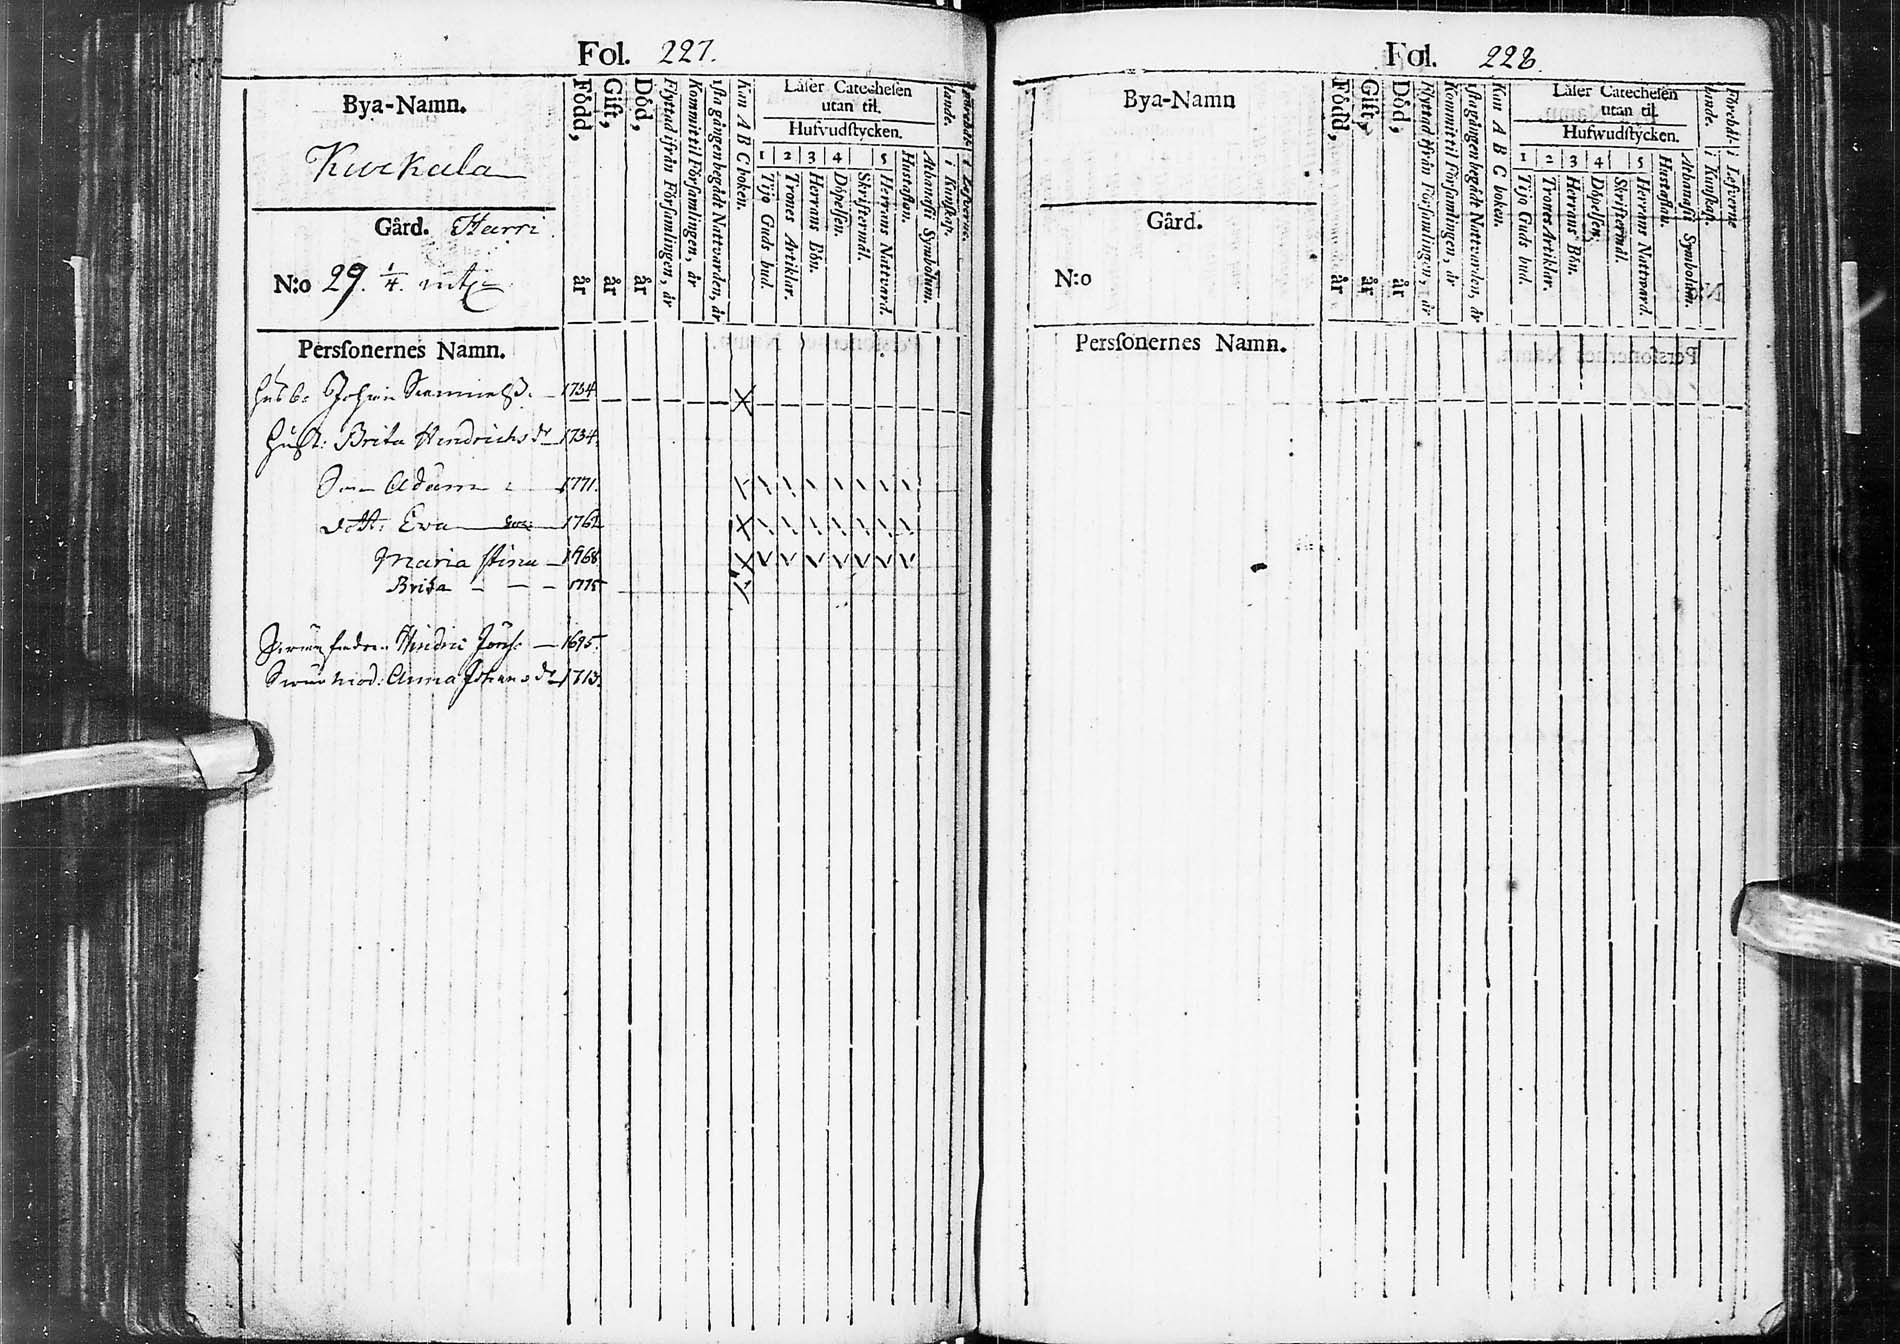 Fol. 227.
Bya-Namn.
Kurkala
Gård. Harri
N:o 29. 1/4. mtl
Född, år
Gift, år
Död, år
Flyttad ifrån Församlingen, år
Kommit til Församlingen, år
1sta gången begådt Nattvarden, år
Kan A B C boken.
Läser Catechesen
utan til.
Hufvudstycken.
1 2 3 4 5
Tijo Guds bud.
Trones Artiklar.
Herrans Bön.
Döpelsen.
Skriftermål.
Herrans Nattvard.
Hustaflan.
Athanasii Symbolum.
i Kunskap.
i Lefverne.
Perssonernes Namn.
Husb: Johan 1734
Hust: Brita Hindrichs dr 1734.
Son Adam 1771.
dott: Ewa 1762
Maria Stina 1768
Brita - - - 1775
Swärfadren Hindric 1695.
Swärmod: Anna Johans dr 1713.
Fol. 228.
Bya-Namn
Gård.
N:o
Född, år
Gift, år
Död, år
Flyttad ifrån Församlingen, år
Kommit til Församlingen, år
1sta gången begådt Nattvarden, år
Kan A B C boken.
Läser Catechesen
utan til.
Hufwudstycken.
1 2 3 4 5
Tijo Guds bud.
Trones Artiklar.
Herrans Bön.
Döpelsen.
Skriftermål.
Herrans Nattvard.
Hustaflan.
Athanasii Symbolum.
Förehål-
lande.
i Kunskap.
i Lefverne
Perssonernes Namn.